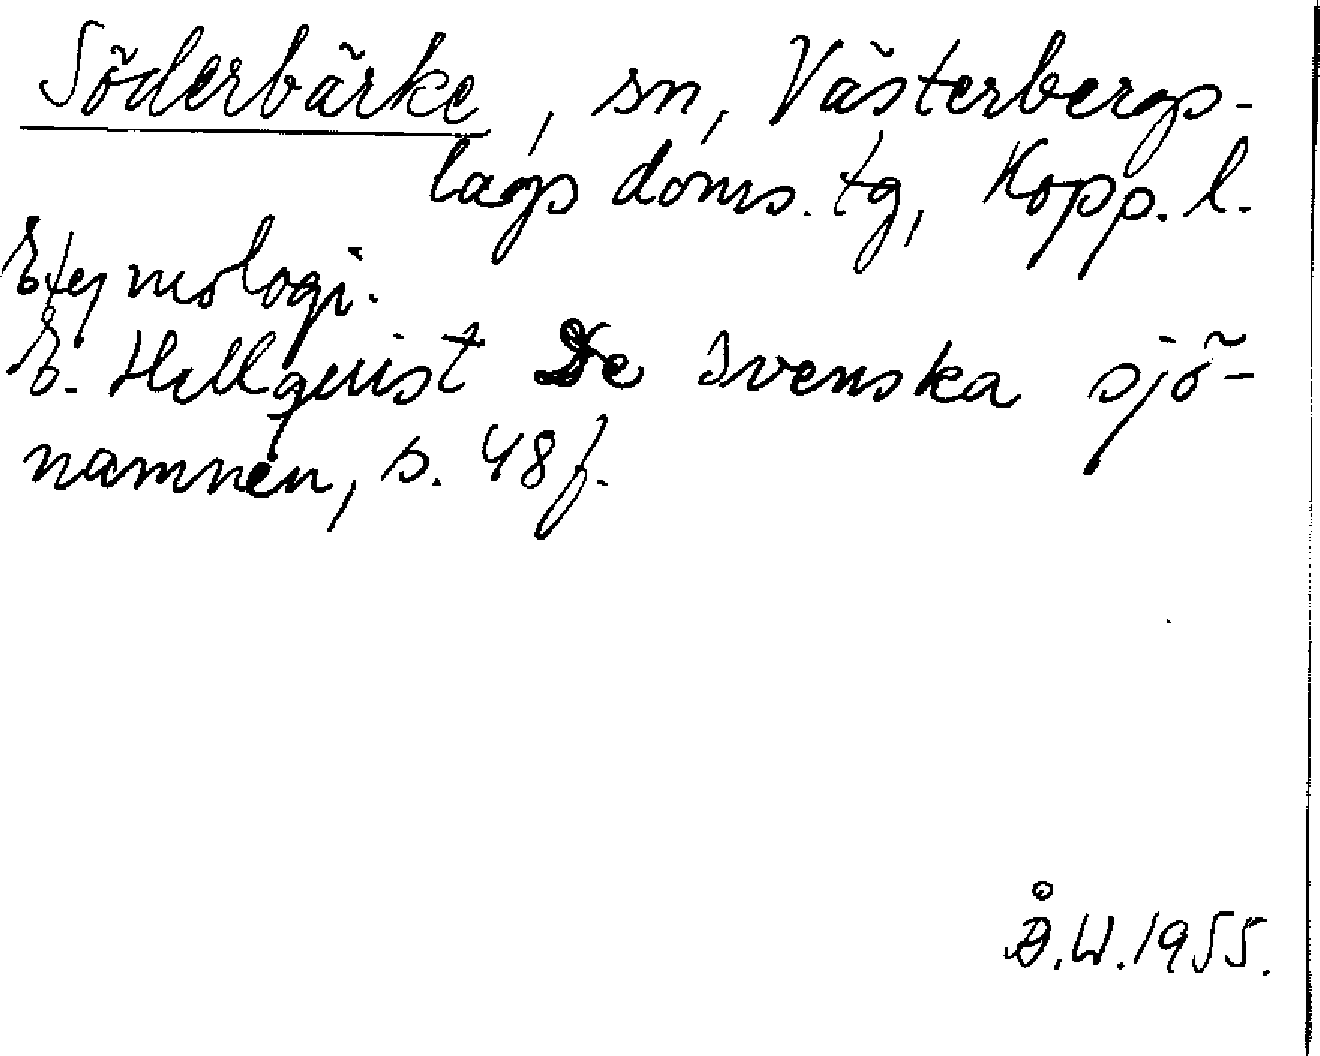 Söderbärke, sn, Västerbergs-
lags doms. tg, Kopp. l.
Etymologi.
E. Hellquist De svenska sjö-
namnen, s. 48 f.
Å.W. 1955.